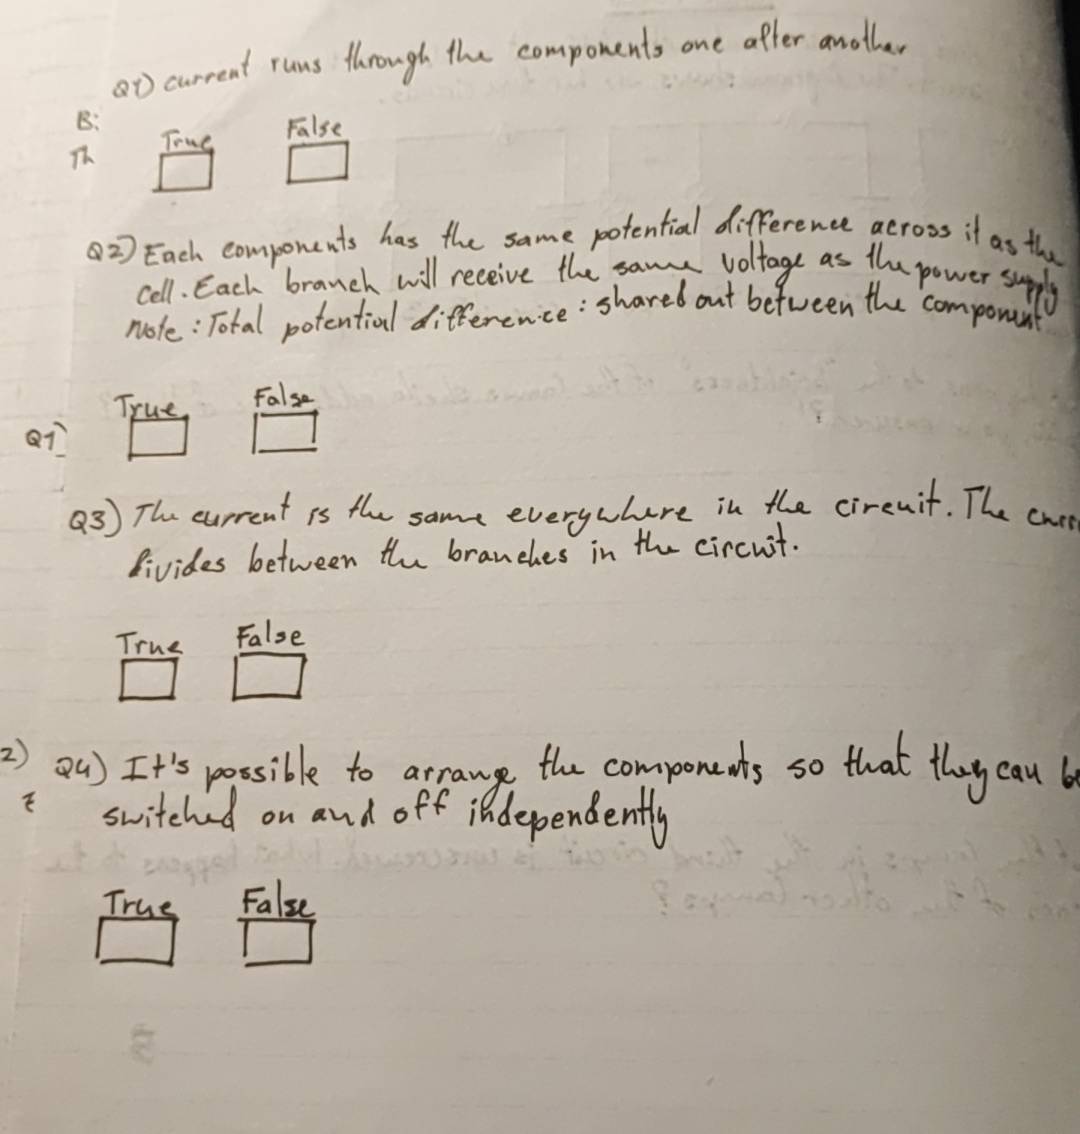 Q1) current runs through the components one after another
B:
Th
True False
Q2) Each components has the same potential difference across it as the
cell. Each branch will receive the same voltage as the power supply
note: Total potential difference: shared out between the component
True False
Q1)
Q3) The current is the same everywhere in the circuit. The
divides between the branches in the circuit.
True False
2)
Q4) It's possible to arrange the components so that they can be
switched on and off independently
True False